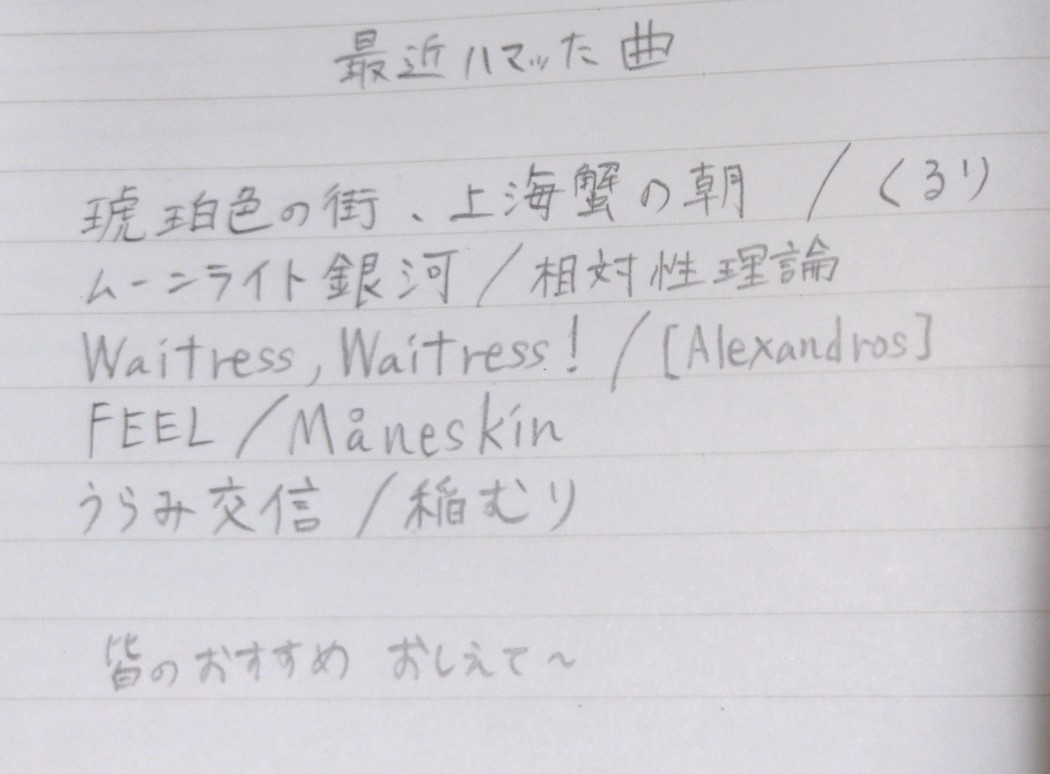 最近ハマッた曲
琥珀色の街、上海蟹の朝 / くるり
ムーンライト銀河 / 相対性理論
Waitress, Waitress! / [Alexandros]
FEEL / Måneskin
うらみ交信 / 稲むり
皆のおすすめ おしえて~